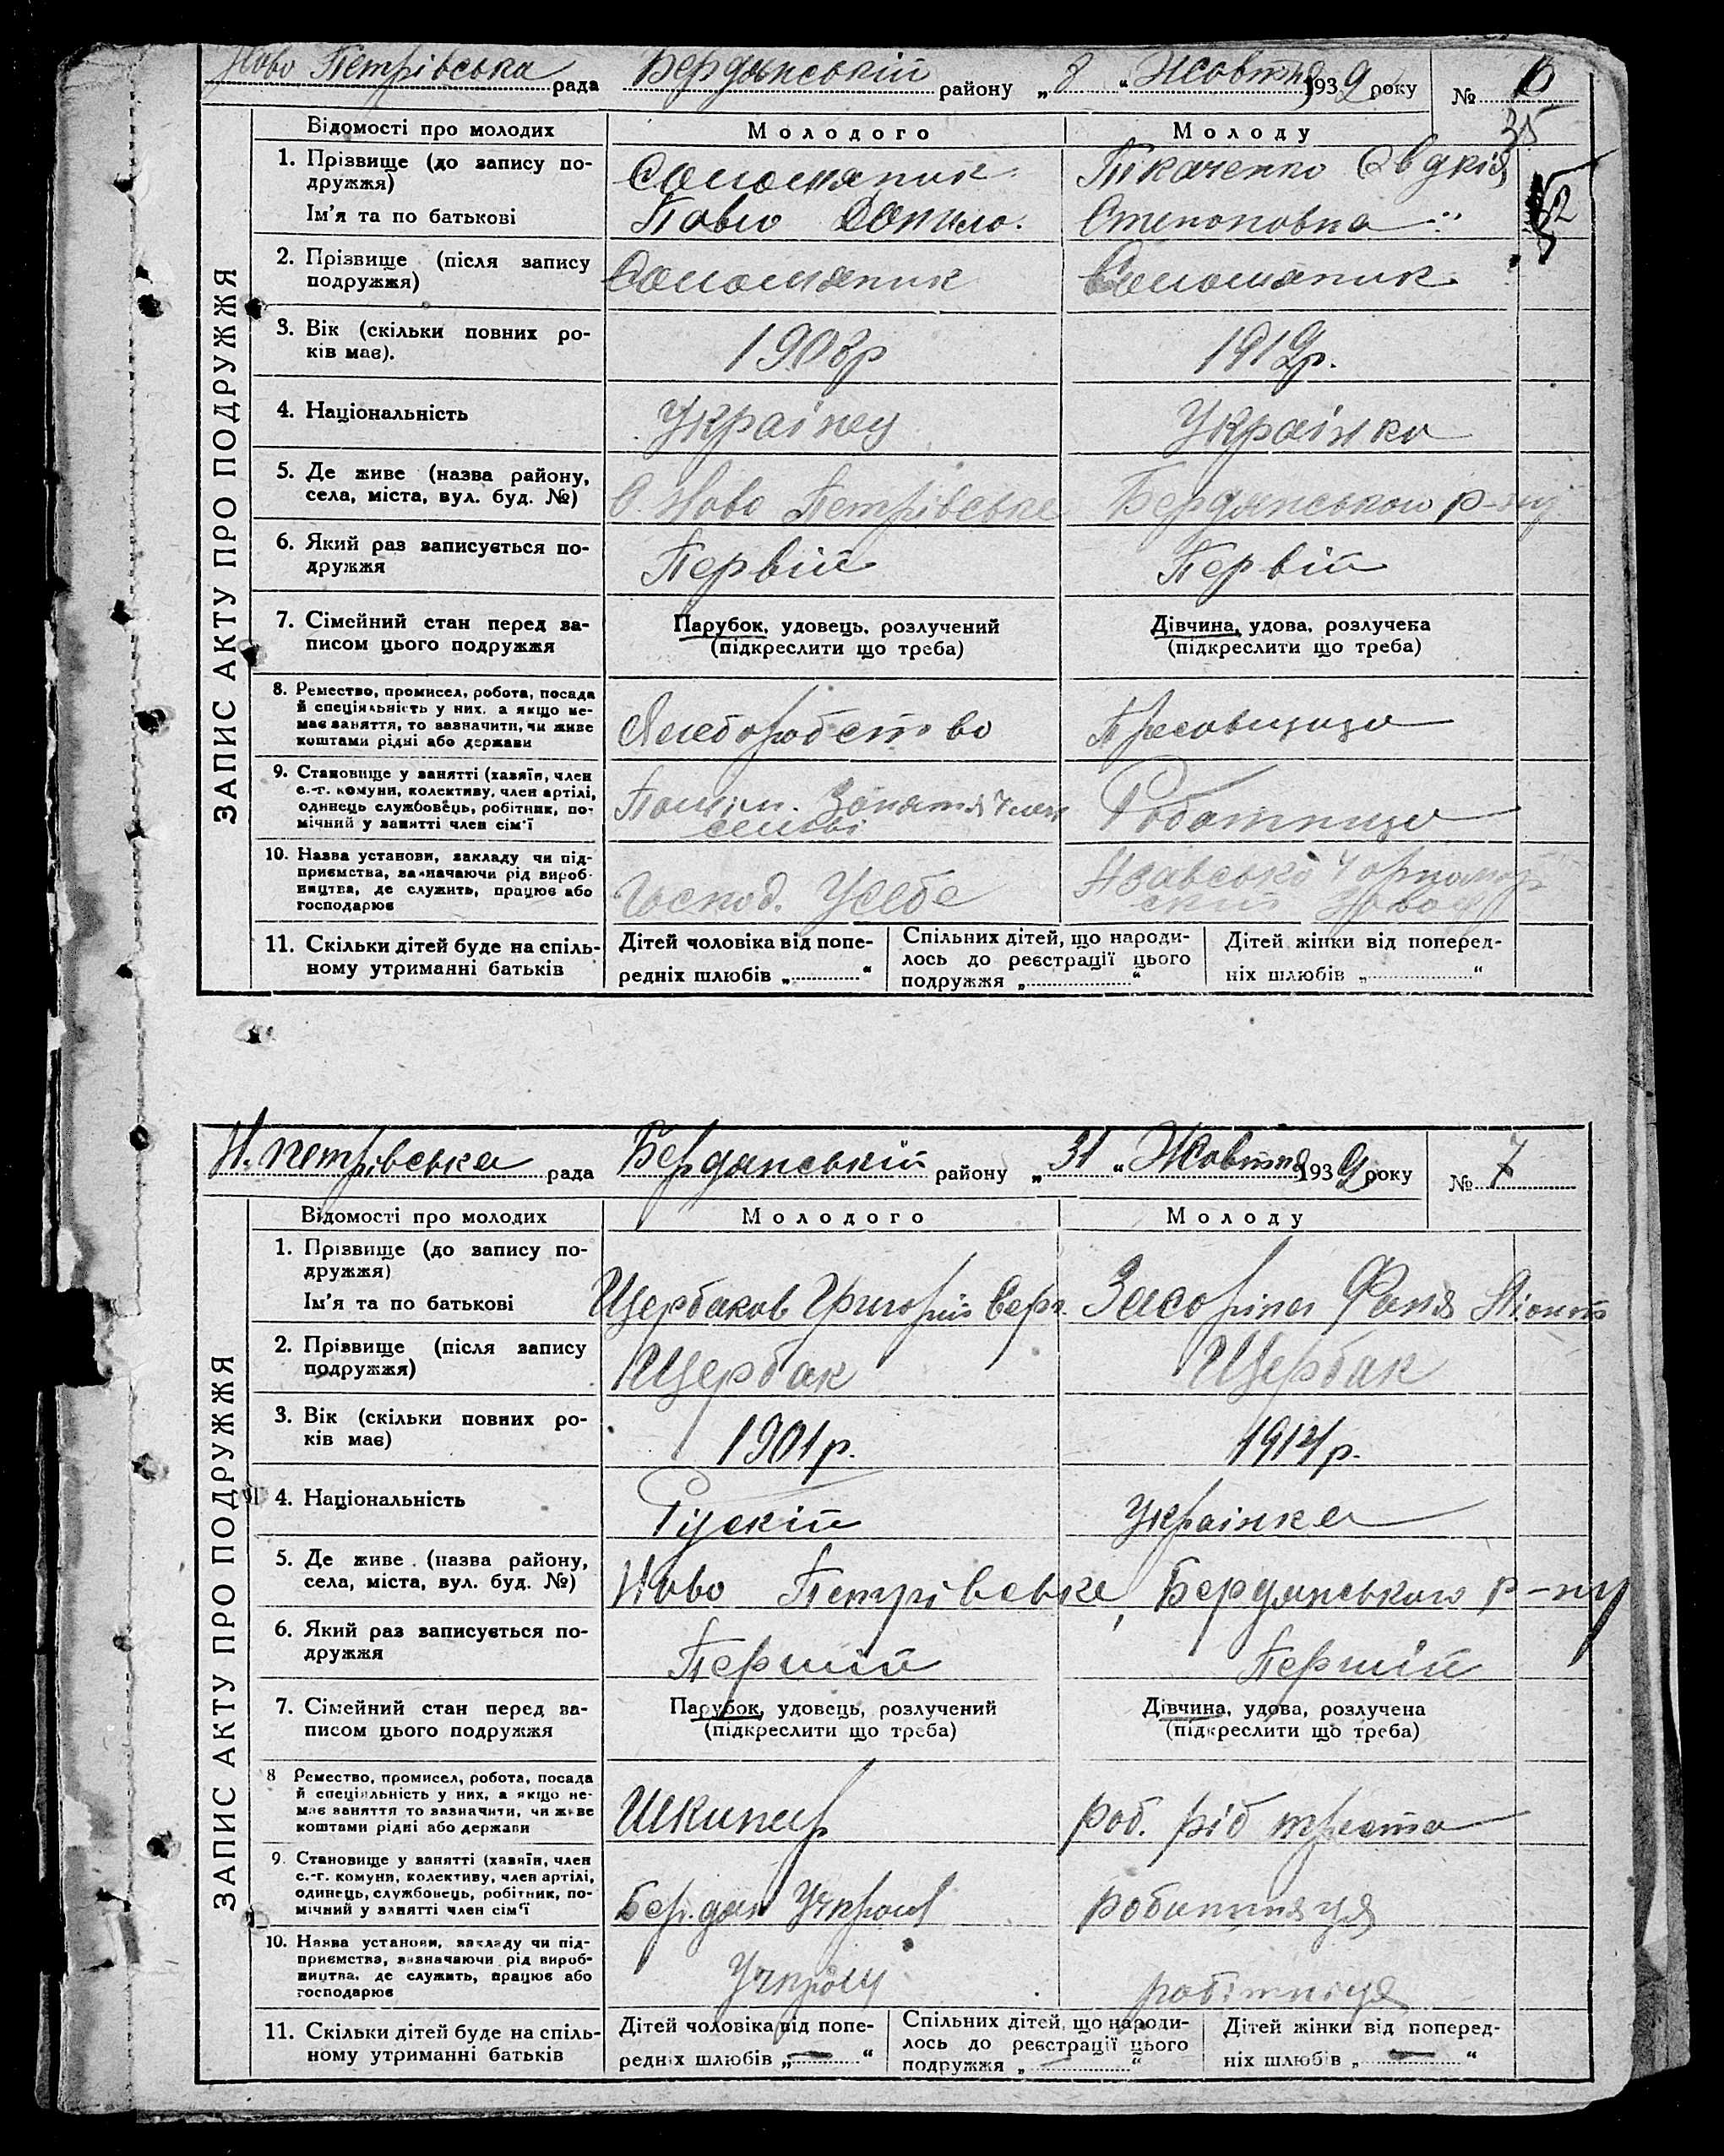 Ново Петрівська рада Бердянській району „ 8 “ Жовтня 1939 року № 6
35
Відомості про молодих Молодого Молоду
ЗАПИС АКТУ ПРО ПОДРУЖЖЯ
1. Прізвище (до запису по-
дружжя)
Ім'я та по батькові
Ткаченко Євдкія
Павло Данило. Степоновна
52
2. Прізвище (після запису
подружжя)
3. Вік (скільки повних ро-
ків має).
1908р 1912р.
4. Національність
Українец Українка
5. Де живе (назва району,
села, міста, вул. буд. №)
С. Ново Петрівське Бердянського р-ну
6. Який раз записується по-
дружжя
Первій Первій
7. Сімейний стан перед за-
писом цього подружжя
Парубок, удовець, розлучений
(підкреслити що треба)
Дівчина, удова, розлучена
(підкреслити що треба)
8. Ремество, промисел, робота, посада
й спеціяльність у них, а якщо не-
має заняття, то зазначити, чи живе
коштами рідні або держави
Хлеборобство
9. Становище у занятті (хазяїн, член
с.-г. комуни, колективу, член артілі,
одинець службовець, робітник, по-
мічний у занятті член сім'ї
Поміч. Заняття член
семьі
Работница
10. Назва установи, закладу чи під-
приємства, зазначаючи рід вироб-
ництва, де служить, працює або
господарює
Господ. Усебе
Азавсько Чорномор
ский Завод
11. Скільки дітей буде на спіль-
ному утриманні батьків
Дітей чоловіка від попе-
редніх шлюбів „ “
Спільних дітей, що народи-
лось до реєстрації цього
подружжя „ “
Дітей жінки від поперед-
ніх шлюбів „ “
Н. петрівська рада Бердянській району „ 31 “ Жовтня 1939 року № 7
Відомості про молодих Молодого Молоду
ЗАПИС АКТУ ПРО ПОДРУЖЖЯ
1. Прізвище (до запису по-
дружжя)
Ім'я та по батькові
Щербаков Григорій Фаня
2. Прізвище (після запису
подружжя)
Щербак Щербак
3. Вік (скільки повних ро-
ків має)
1901р. 1914р.
4. Національність
Рускій Українка
5. Де живе (назва району,
села, міста, вул. буд. №)
Ново Петрівське, Бердянського р-ну
6. Який раз записується по-
дружжя
Першій Першій
7. Сімейний стан перед за-
писом цього подружжя
Парубок, удовець, розлучений
(підкреслити що треба)
Дівчина, удова, розлучена
(підкреслити що треба)
8 Ремество, промисел, робота, посада
й спеціяльність у них, а якщо не-
має заняття то зазначити, чи живе
коштами рідні або держави
Шкипер роб. ріб треста
9. Становище у занятті (хазяїн, член
с.-г. комуни, колективу, член артілі,
одинець, службовець, робітник, по-
мічний у занятті член сім'ї
10. Назва установи, закладу чи під-
приємства, зазначаючи рід вироб-
ництва, де служить, працює або
господарює
робітниця
11. Скільки дітей буде на спіль-
ному утриманні батьків
Дітей чоловіка від попе-
редніх шлюбів „ — “
Спільних дітей, що народи-
лось до реєстрації цього
подружжя „ — “
Дітей жінки від поперед-
ніх шлюбів „ — “